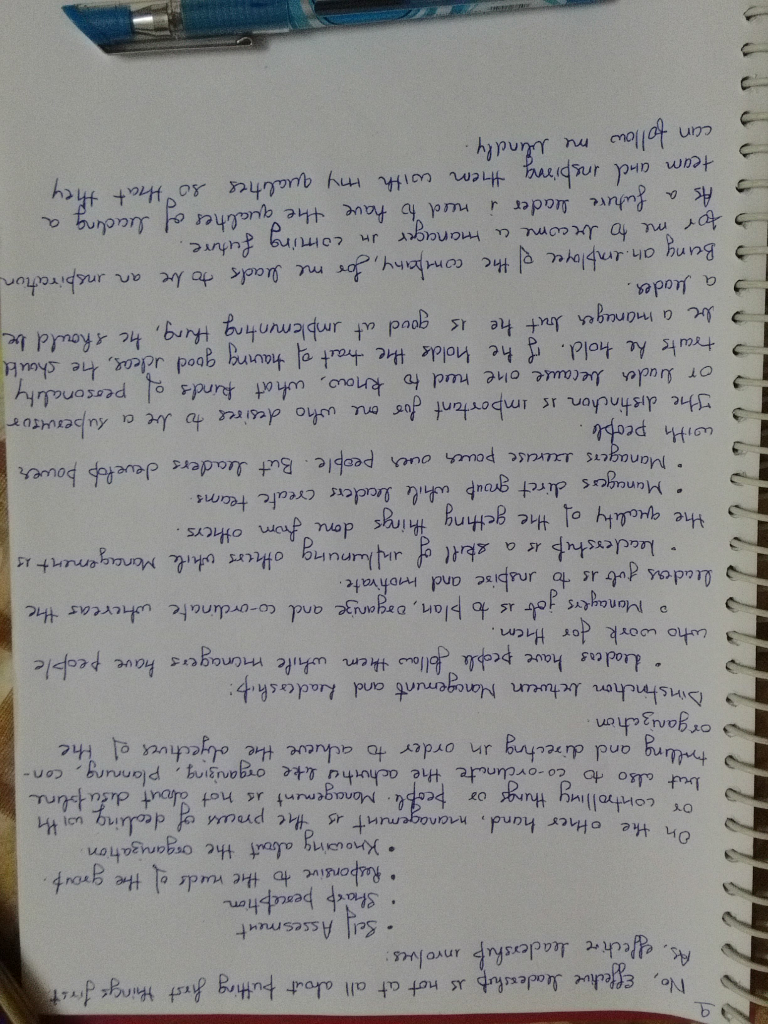 9
No, Effective leadership is not at all about putting first things first
As, effective leadership involves:
• Self Assessment
• Sharp perception
• Responsive to the needs of the group.
• Knowing about the organization.
On the other hand, management is the process of dealing with
or controlling things or people. Management is not about discipline
but also to co-ordinate the activities like organizing, planning, con-
trolling and directing in order to achieve the objectives of the
organization.
Dinstinction between Management and Leadership:
• Leaders have people follow them while managers have people
who work for them.
• Managers job is to plan, organize and co-ordinate whereas the
leaders job is to inspire and motivate.
• Leadership is a skill of influencing others while Management is
the quality of the getting things done from others.
• Managers direct group while leaders create teams.
• Managers exercise power over people. But leaders develop power
with people.
The distinction is important for one who desires to be a supervisor
or leader because one need to know, what kinds of personality
traits he hold. If he holds the trait of having good ideas, he should
be a manager but he is good at implementing thing, he should be
a leader.
Being an employee of the company, for me leads to be an inspiration
for me to become a manager in coming future.
As a future leader i need to have the qualities of leading a
team and inspiring them with my qualities so that they
can follow me blindly.